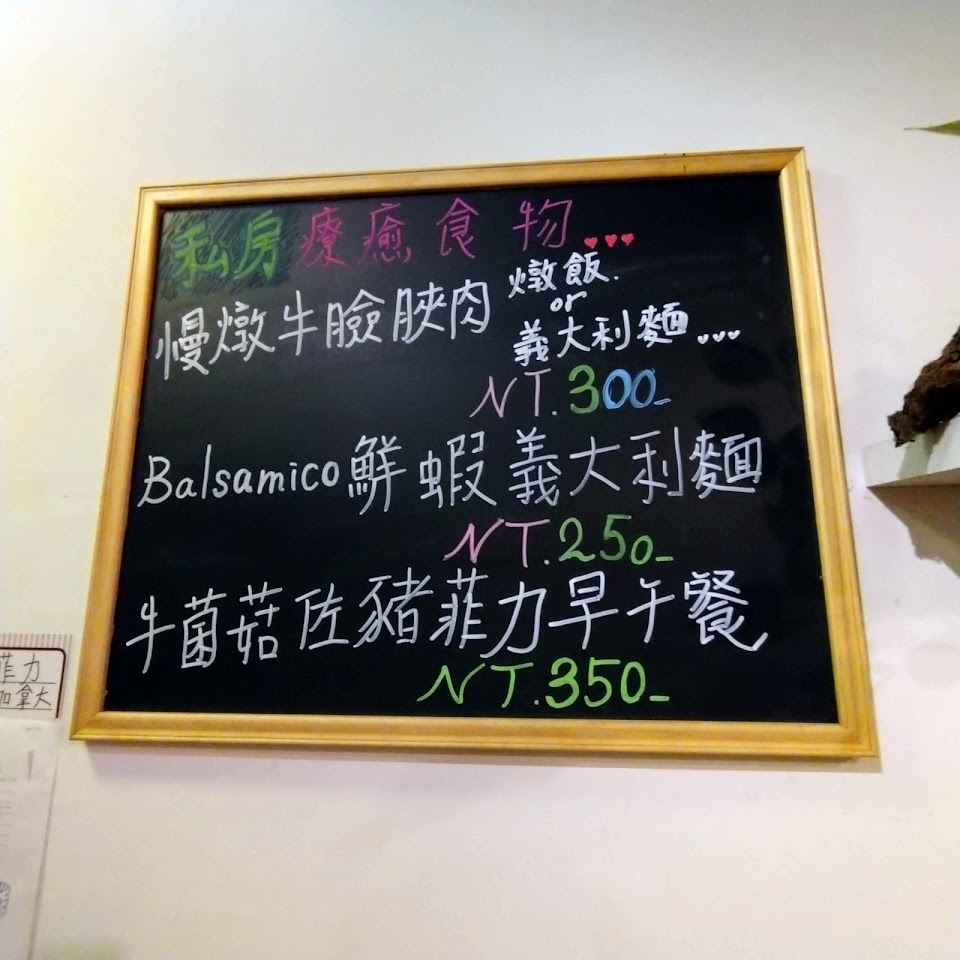 私房療癒食物...
慢燉牛臉脥肉
燉飯.
or
義大利麵...
NT.300-
Balsamico鮮蝦義大利麵
NT.250-
牛菌菇佐豬菲力早午餐
NT.350-
菲力
加拿大